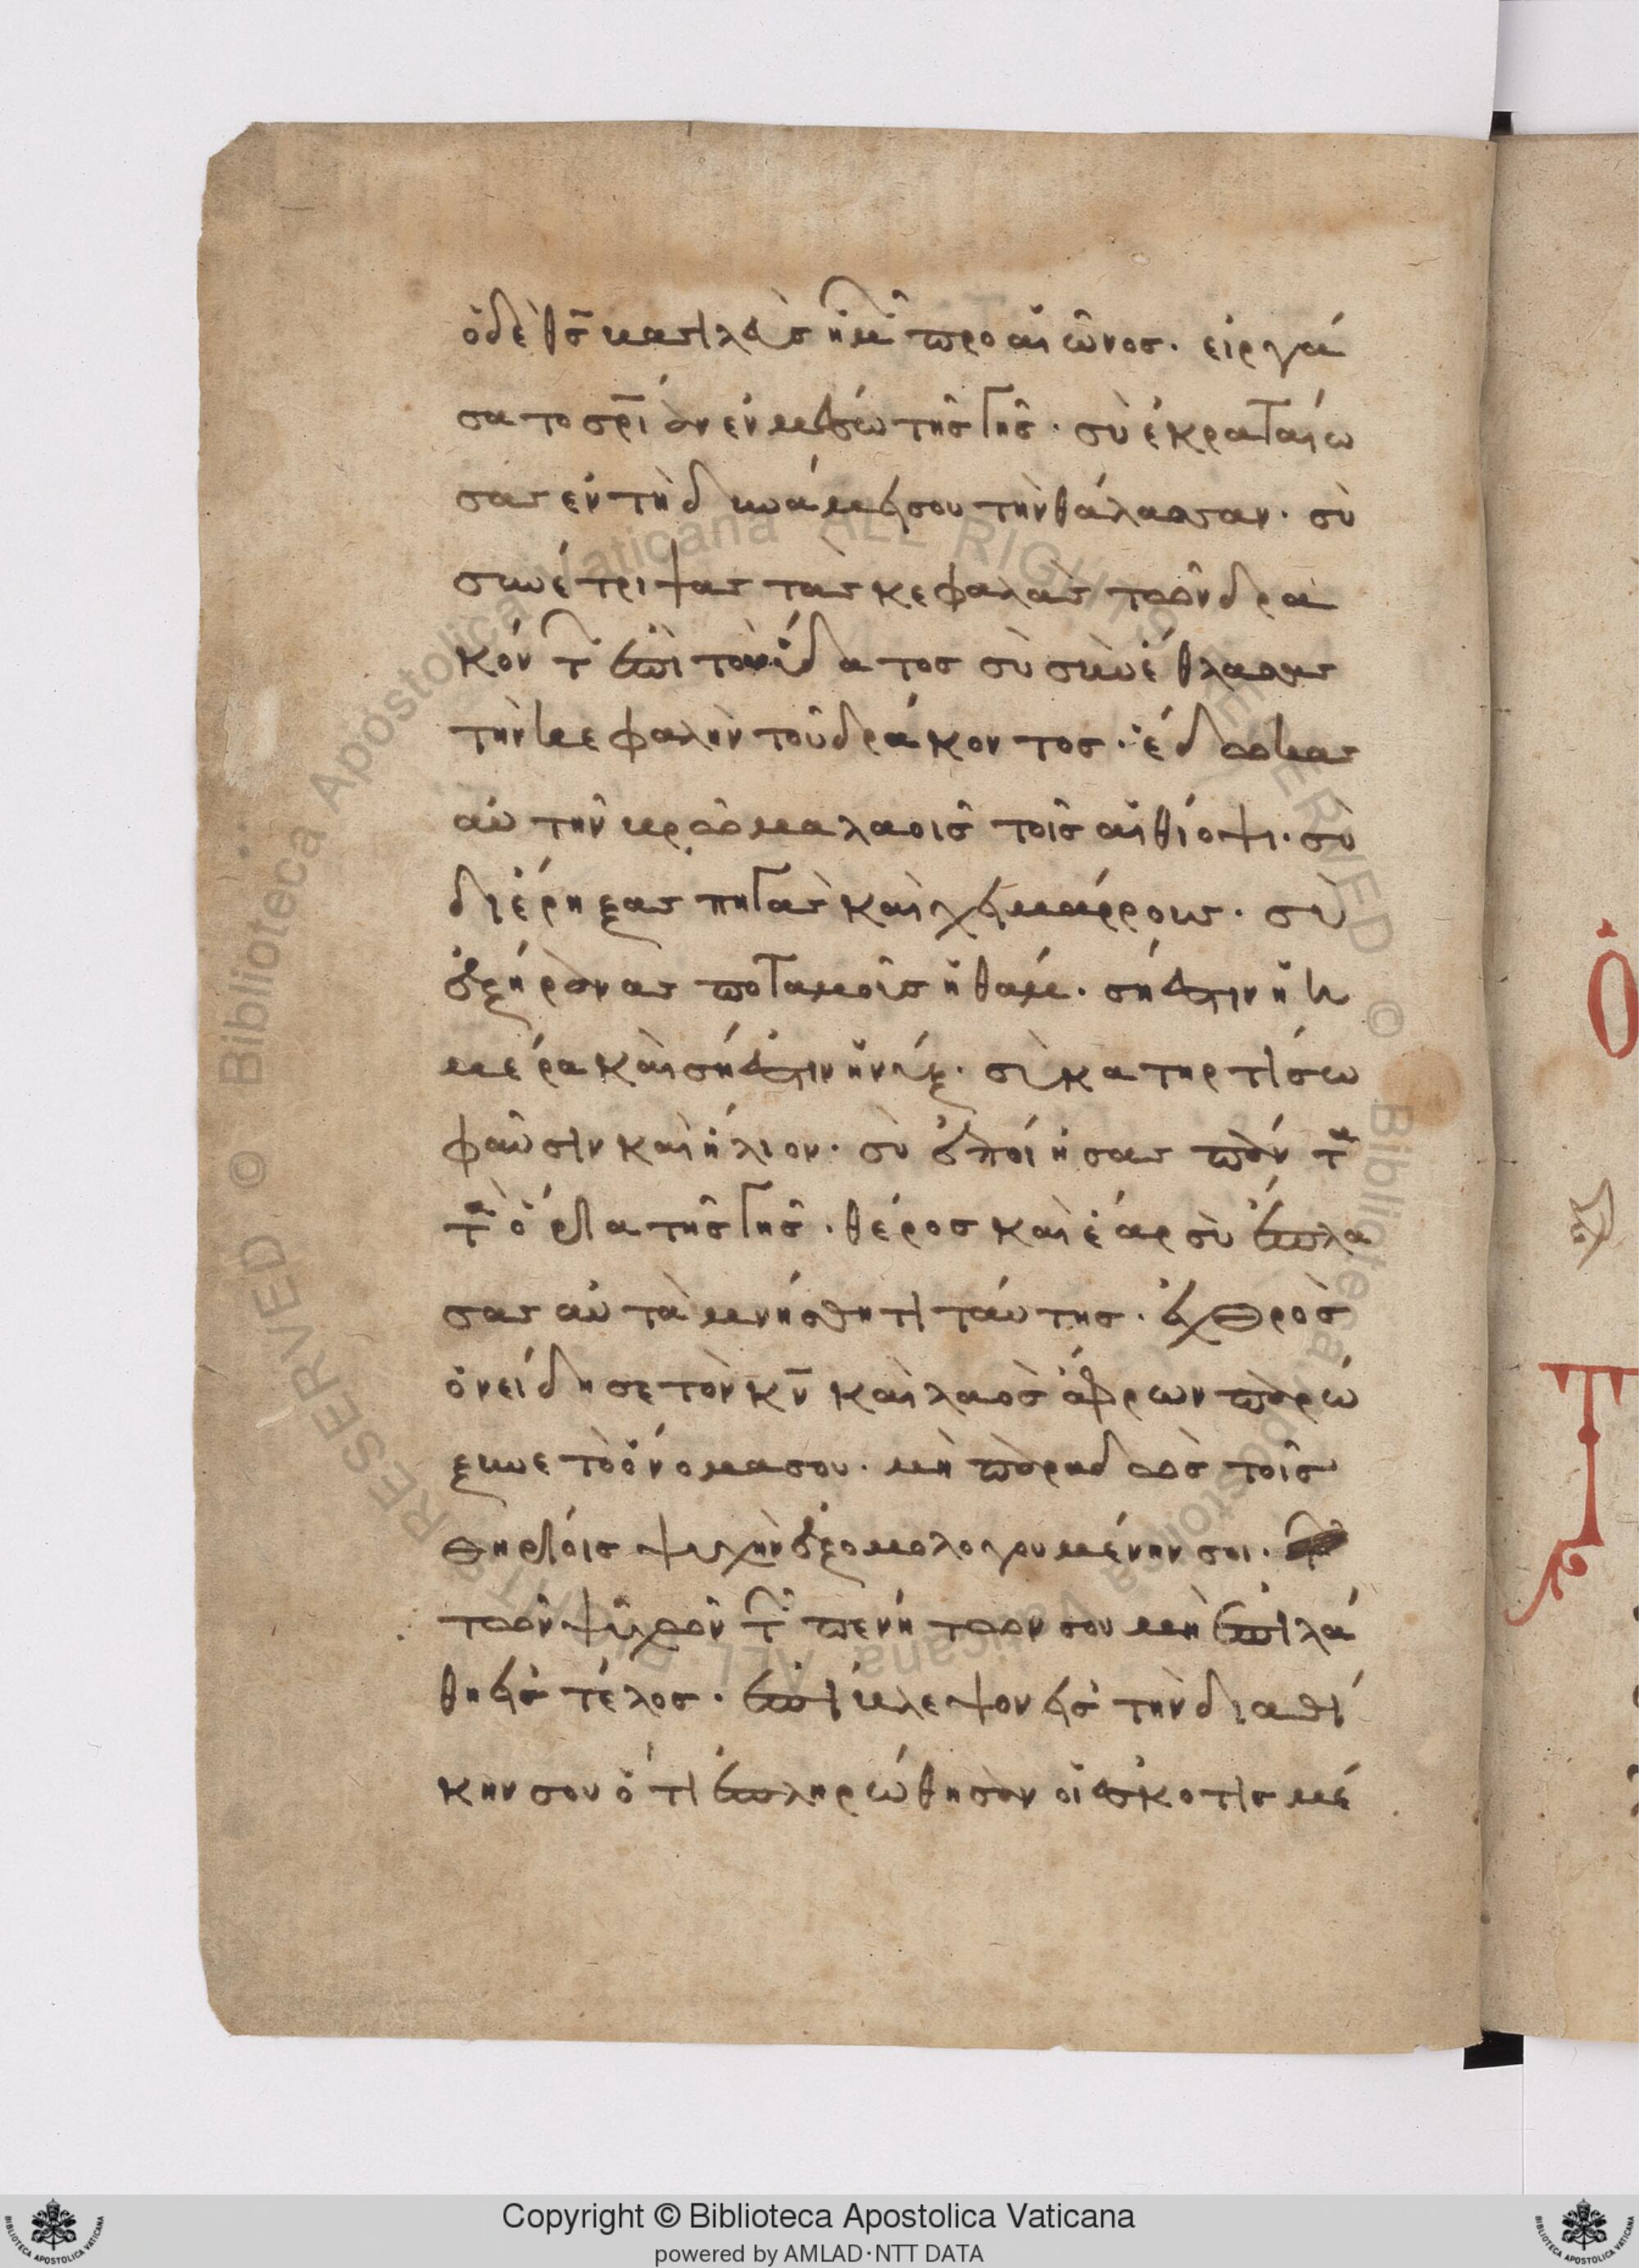 ὁ δὲ θς̄ βασιλεὺς ἡμῶν προ αἰῶνος. εἰργά
σατο σρῑαν ἐν μέσω τῆς γῆς. σὺ ἐκραταίω
σας ἐν τὴ δυνάμει σου τὴν θάλασσαν. σὺ
συνέτριψας τὰς κεφαλὰς τῶν δρα
κόντων ἐπὶ τοῦ ὕδατος σὺ συνέθλασας
τὴν κεφαλὴν τοῦ δράκοντος. ἔδωκας
αὐτὴν βρῶμα λαοῖς τοῖς αἰθίοψι. σὺ
διέρηξας πηγὰς καὶ χειμάρρους. σὺ
ἐξήρανας ποταμοὺς ἠθάμ. σή ἐστιν ἡ ἡ
μέρα καὶ σή ἐστιν ἡ νύξ. σὺ κατηρτίσω
φαῦσιν καὶ ἥλιον. σὺ ἐποίησας πάντα
τὰ ὅρια τῆς γῆς. θέρος καὶ ἔαρ σὺ ἔπλα
σας αὐτὰ μνήσθητι ταύτης. ἐχθρὸς
ὀνείδησε τὸν κν̄ καὶ λαὸς ἄφρων παρώ
ξυνε τὸ ὄνομα σου. μὴ παραδῶς τοῖς
θηρίοις ψυχὴν ἐξομολογουμένην σοι.
τῶν ψυχῶν τῶν πενήτων σου μὴ ἐπιλά
θη εἰς τέλος. ἐπίβλεψον εἰς τὴν διαθή
κην σου ὅτι ἐπληρώθησαν οἱ ἐσκοτισμέ
Copyright © Biblioteca Apostolica Vaticana
powered by AMLAD·NTT DATA